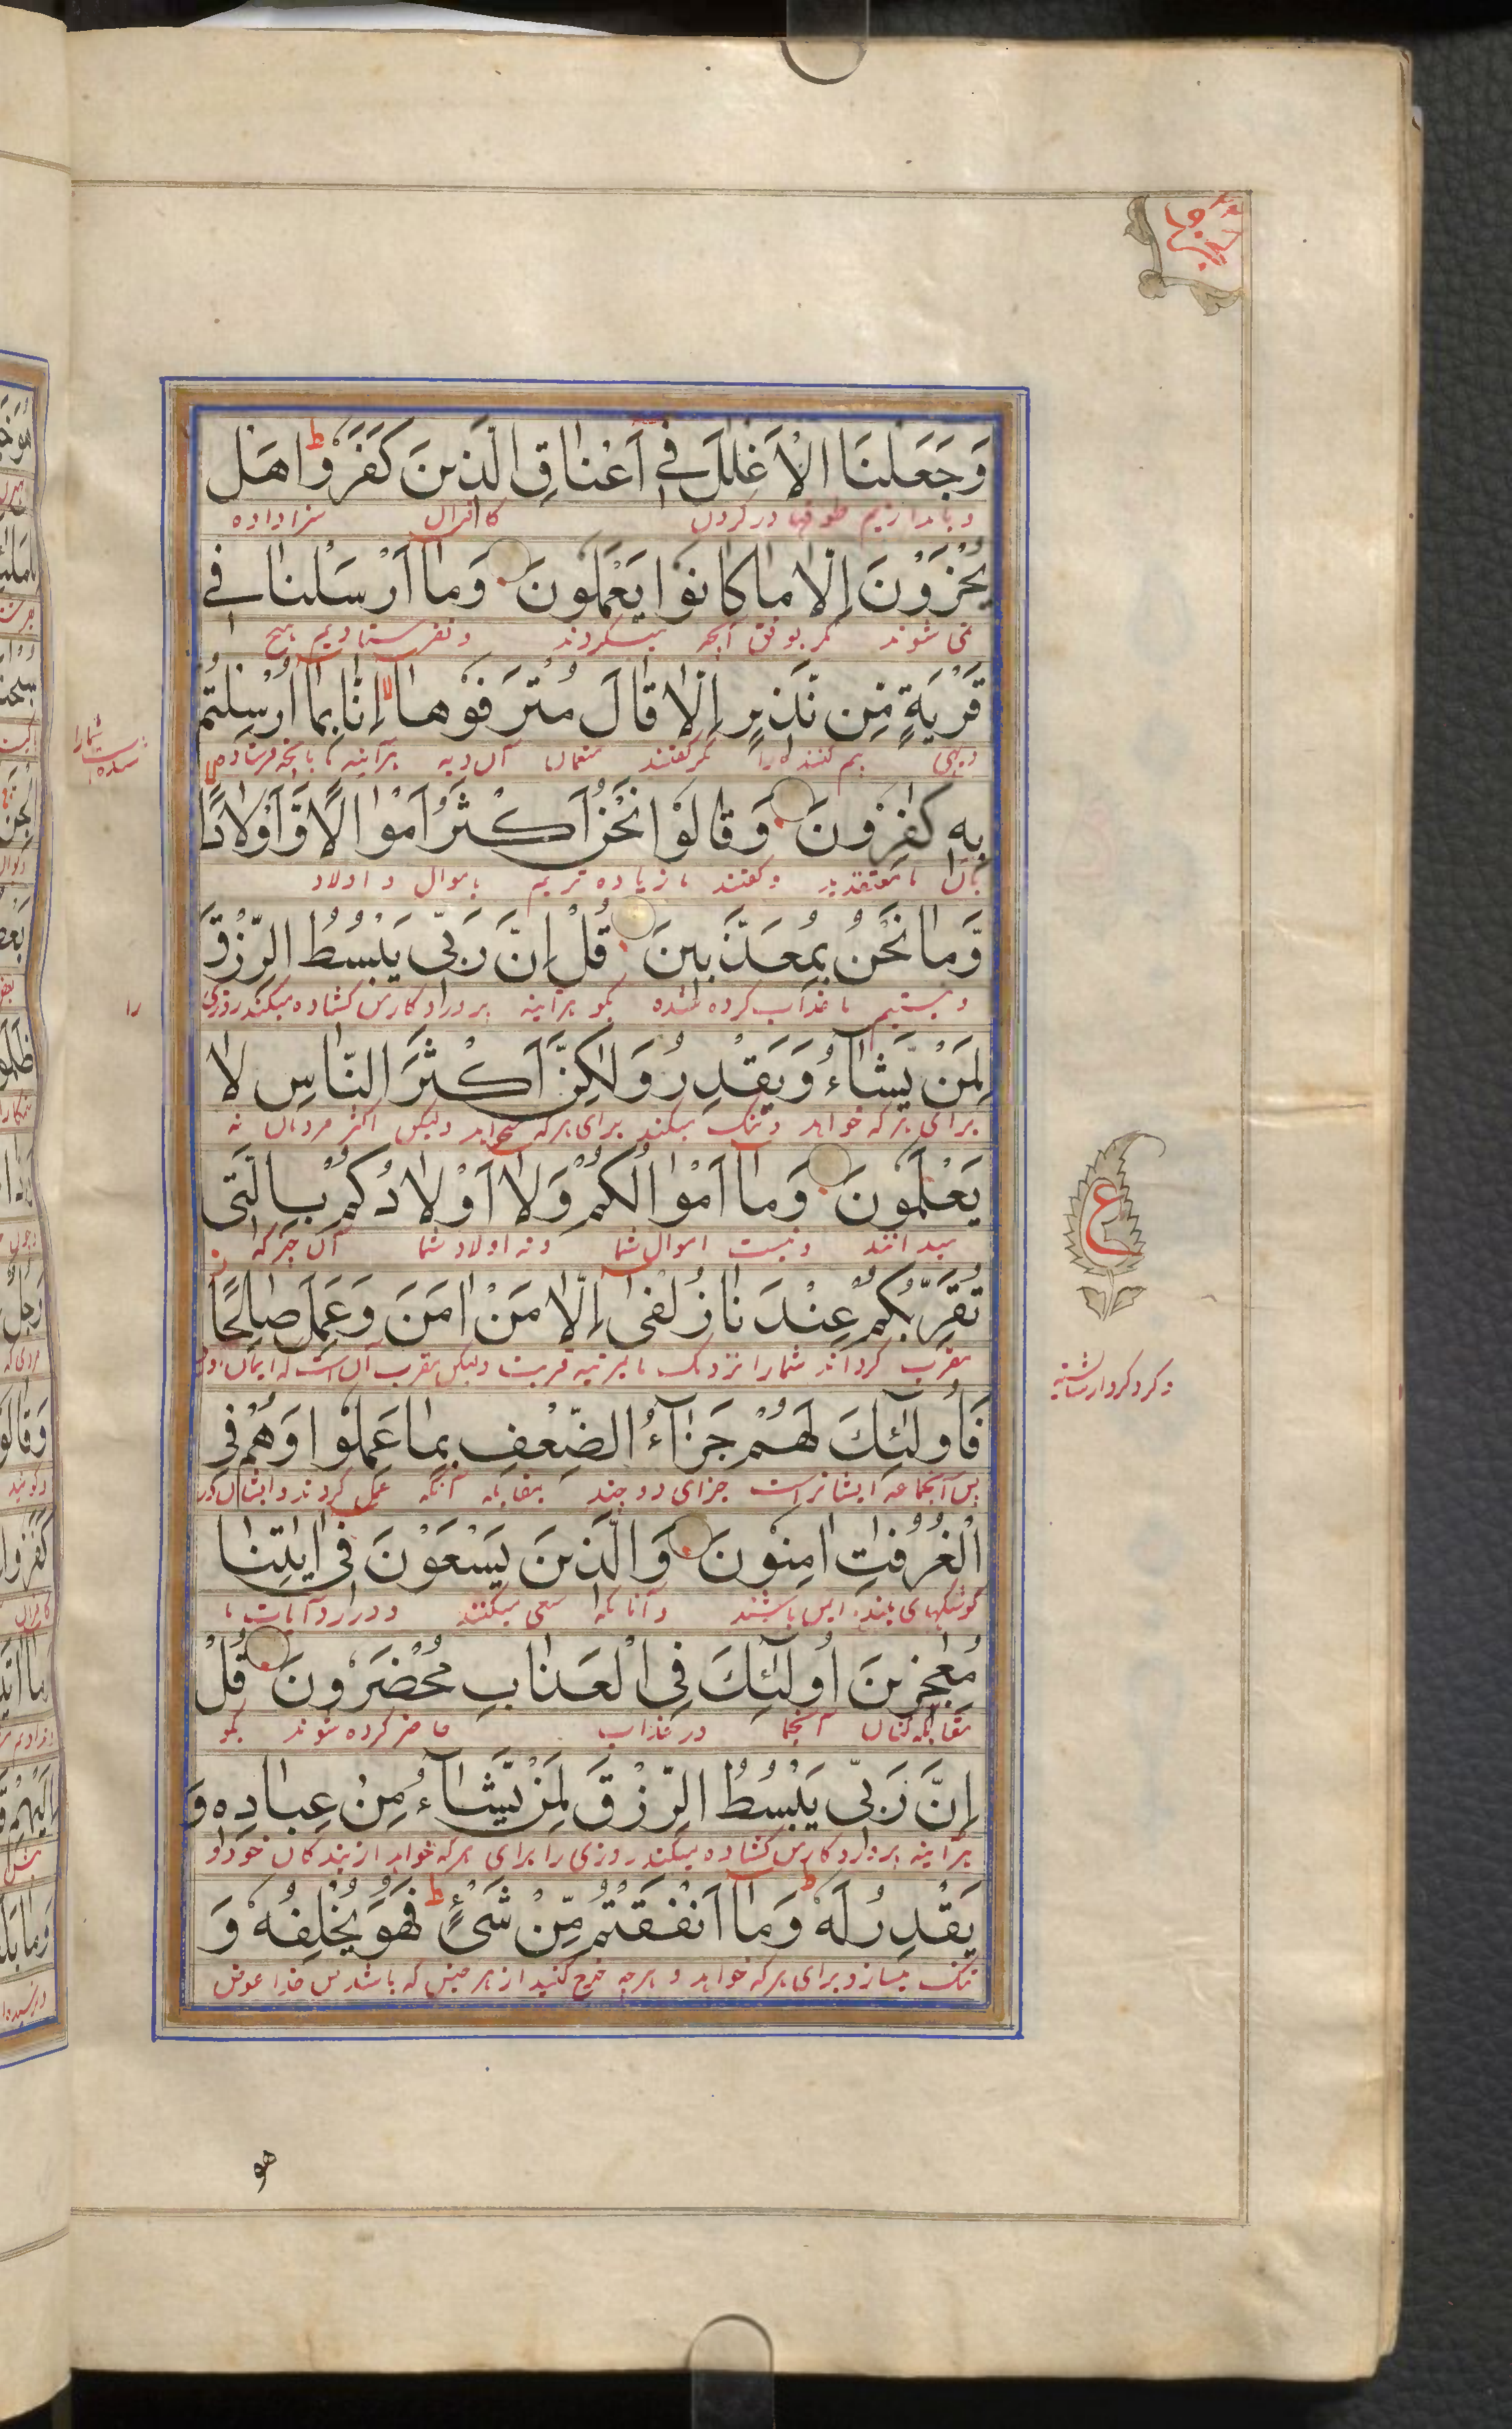 وَجَعَلْنَا الْاَغْلٰلَ فِےْ اَعْنَاقِ الَّذِیْنَ كَفَرُوْا ط هَلْ
و بیندازیم طوقها در گردن کافران سزا داده
یُجْزَوْنَ اِلَّا مَا كَانُوْا یَعْمَلُوْنَ وَمَا اَرْسَلْنَا فِےْ
نمی شوند مگر بوفق آنچه میکردند و نفرستادیم هیچ
قَرْیَةٍ مِّنْ نَّذِیْرٍ اِلَّا قَالَ مُتْرَفُوْهَا لا اِنَّا بِمَا اُرْسِلْتُمْ
دیهی بیم کننده را مگر گفتند منعمان آن دیه هرآئینه ما بآنچه فرستاده
شده شمارا
بِهٖ كٰفِرُوْنَ وَقَالُوْا نَحْنُ اَكْثَرُ اَمْوَالًا وَّاَوْلَادًا
بآن نامعتقدیم و گفتند ما زیاده تریم باموال و اولاد
وَّمَا نَحْنُ بِمُعَذَّبِیْنَ قُلْ اِنَّ رَبِّیْ یَبْسُطُ الرِّزْقَ
و نیستیم ما عذاب کرده شده بگو هرآئینه پروردگار من کشاده میکند روزی
را
لِمَنْ یَّشَآءُ وَیَقْدِرُ وَلٰكِنَّ اَكْثَرَ النَّاسِ لَا
برای هر که خواهد و تنگ میکند برای هر که خواهد ولیکن اکثر مردمان نه
یَعْلَمُوْنَ وَمَا اَمْوَالُكُمْ وَلَا اَوْلَادُكُمْ بِالَّتِیْ
میدانند و نیست اموال شما و نه اولاد شما آن چیز که
تُقَرِّبُكُمْ عِنْدَنَا زُلْفٰی اِلَّا مَنْ اٰمَنَ وَعَمِلَ صَالِحًا
مقرب گرداند شمارا نزدیک ما بمرتبه قربت ولیکن مقرب آن است که ایمان آورد
و کرد کردار شایسته
ع
فَاُولٰٓئِكَ لَهُمْ جَزَآءُ الضِّعْفِ بِمَا عَمِلُوْا وَهُمْ فِی
پس آنجماعه ایشانراست جزای دو چند بمقابله آنکه عمل کردند و ایشان در
الْغُرُفٰتِ اٰمِنُوْنَ وَالَّذِیْنَ یَسْعَوْنَ فِیْ اٰیٰتِنَا
کوشکهای بلند ایمن باشند و آنانکه سعی میکنند در رد آیات ما
مُعٰجِزِیْنَ اُولٰٓئِكَ فِی الْعَذَابِ مُحْضَرُوْنَ قُلْ
مقابله کنان آنجما در عذاب حاضر کرده شوند بگو
اِنَّ رَبِّیْ یَبْسُطُ الرِّزْقَ لِمَنْ یَّشَآءُ مِنْ عِبَادِهٖ وَ
هرآئینه پروردگار من کشاده میکند روزی را برای هر که خواهد از بندگان خود و
یَقْدِرُ لَهٗ ط وَمَا اَنْفَقْتُمْ مِّنْ شَیْءٍ ط فَهُوَ یُخْلِفُهٗ وَ
تنگ میسازد برای هر که خواهد و هرچه خرج کنید از هر جنس که باشد پس خدا عوض
هو